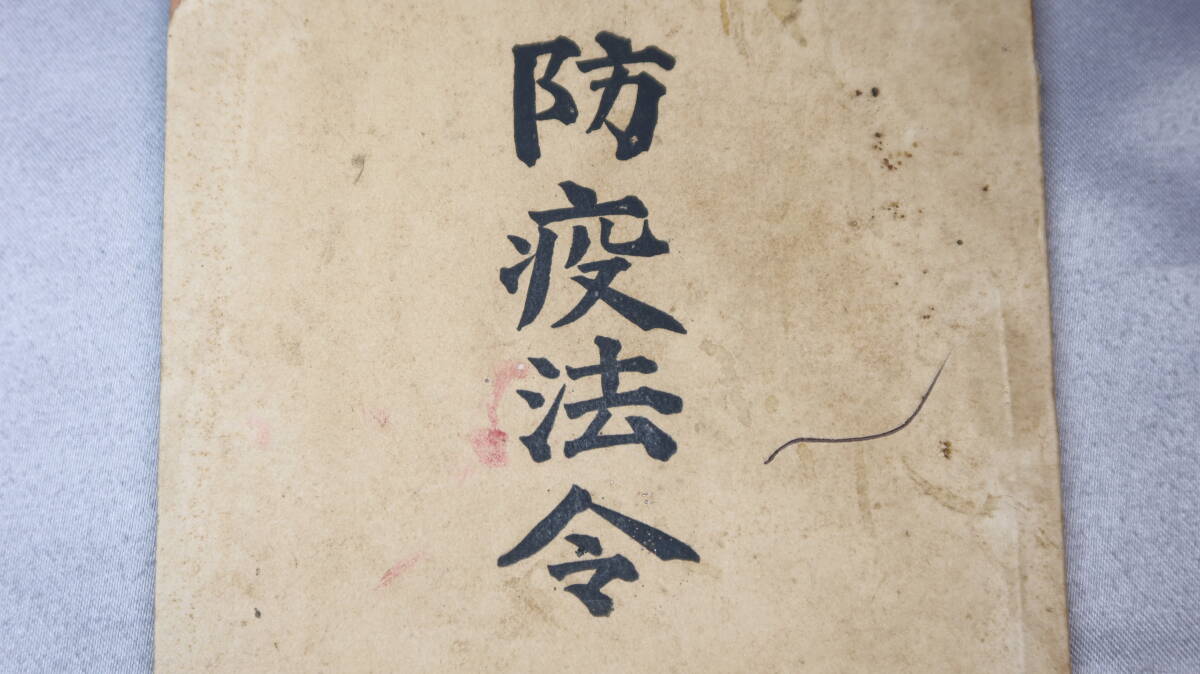 防疫法令